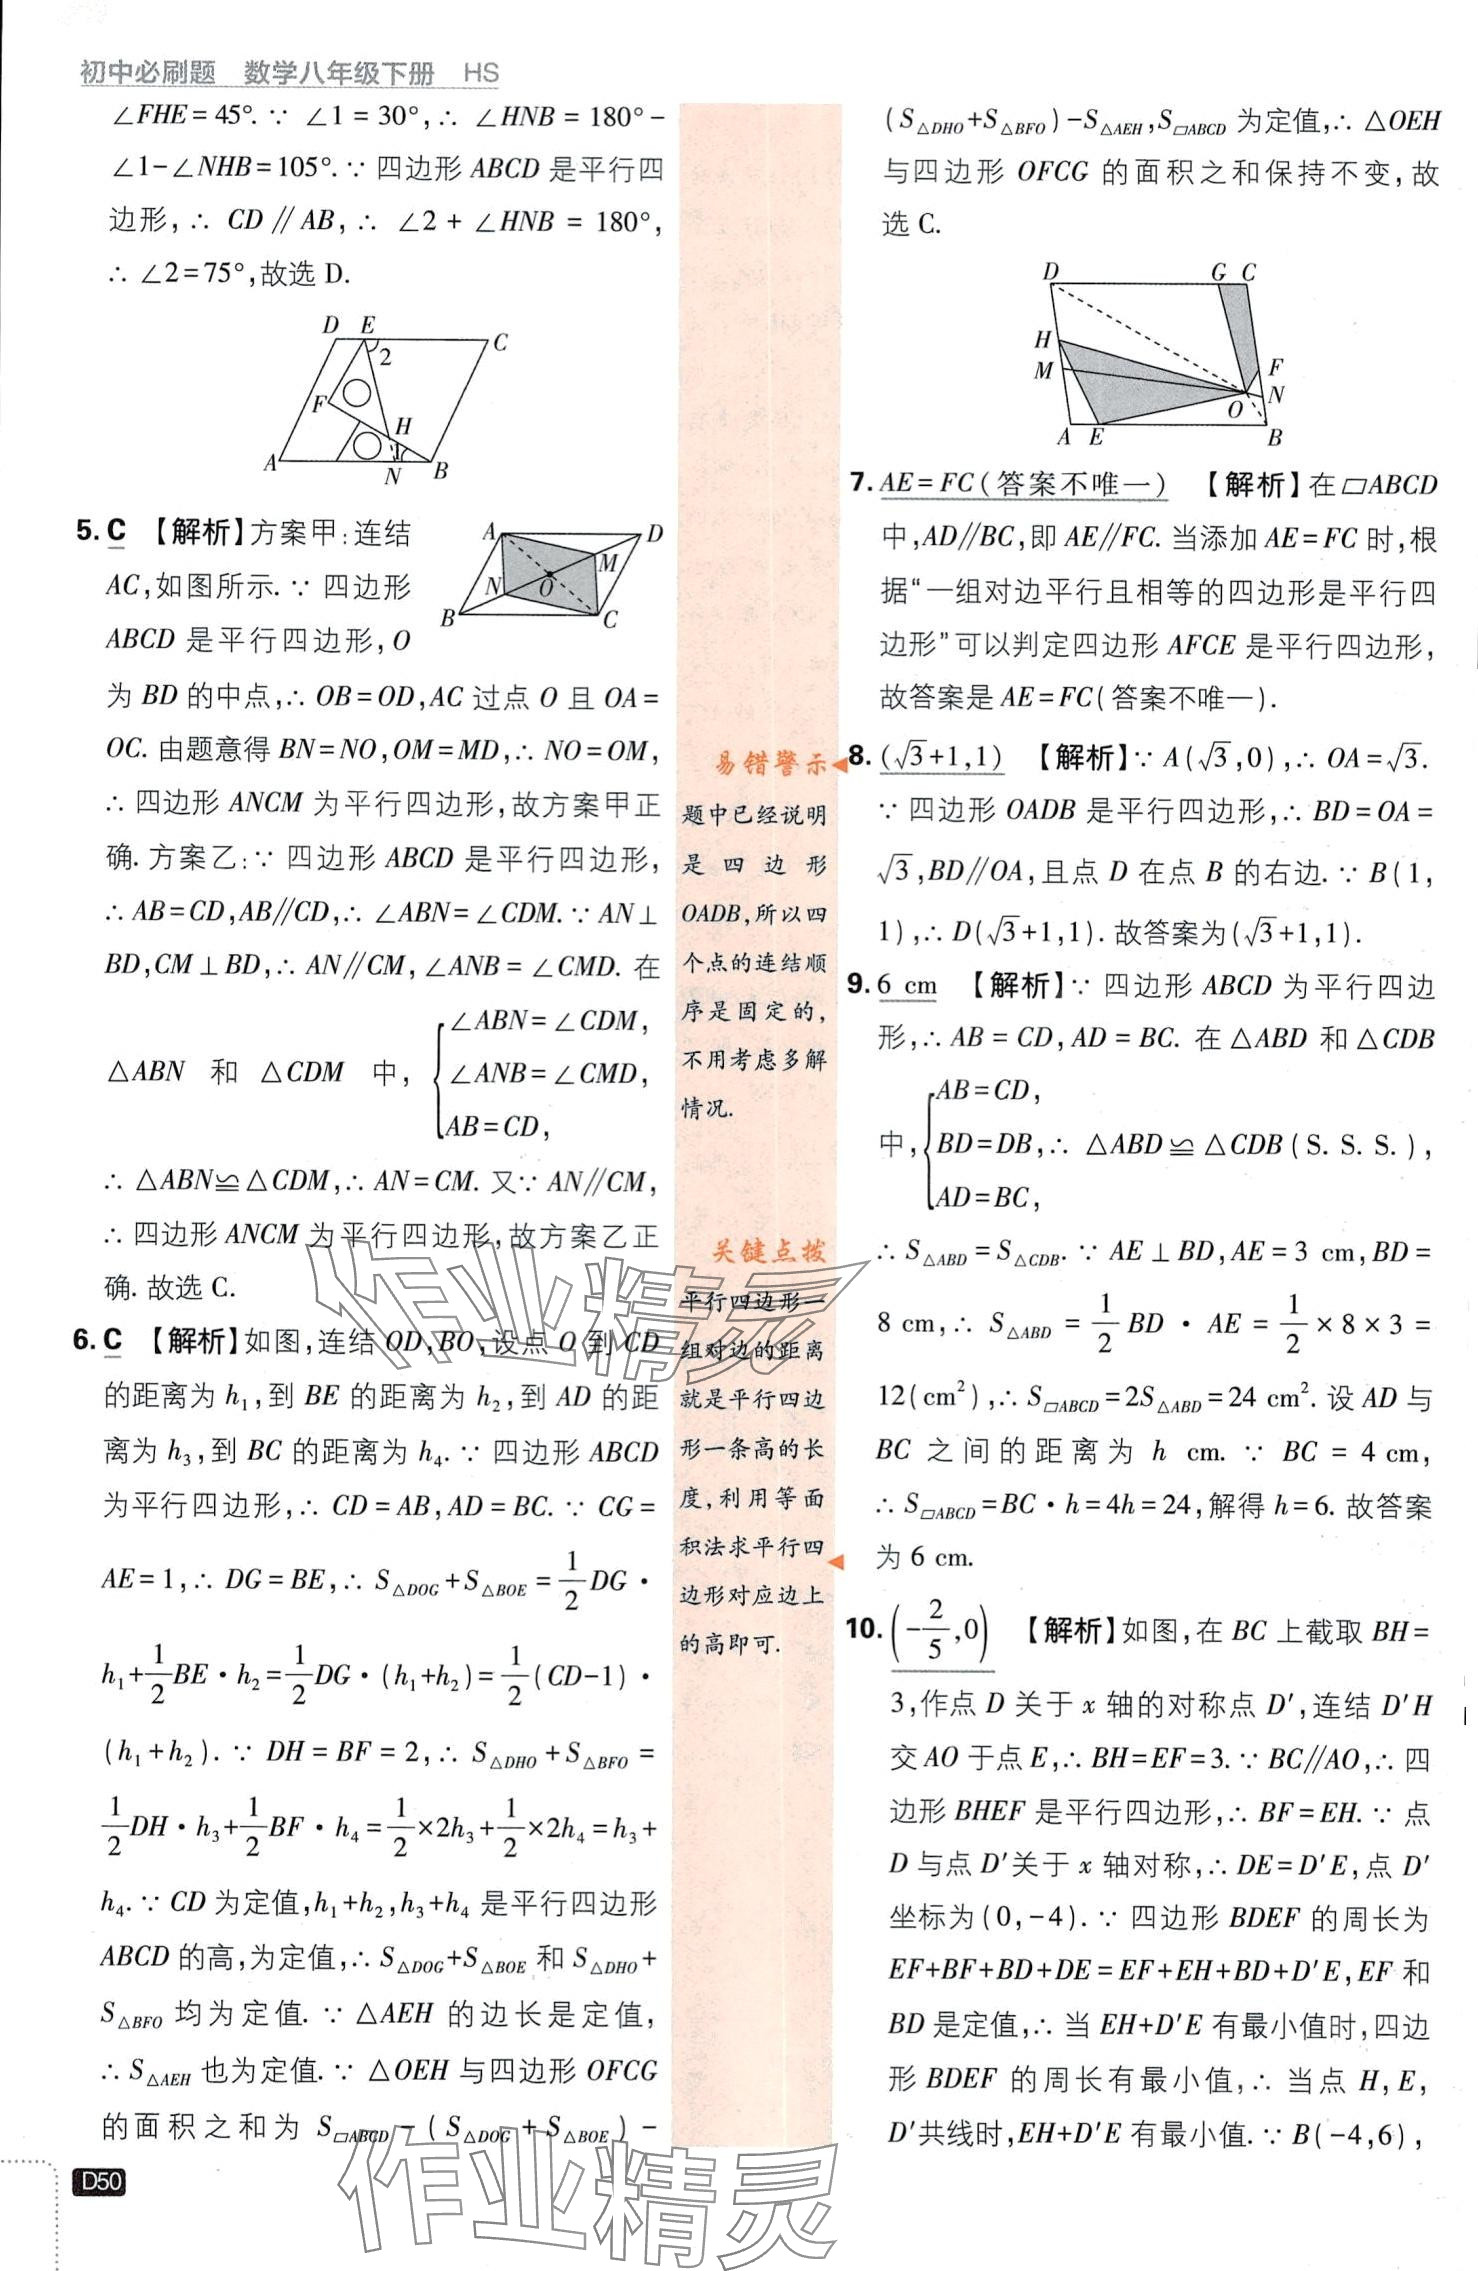 初中必刷题 数学八年级下册 HS
∠FHE=45°.∵ ∠1=30°,∴ ∠HNB=180°-
∠1-∠NHB=105°.∵ 四边形 ABCD 是平行四
边形,∴ CD∥AB,∴ ∠2+∠HNB=180°,
∴ ∠2=75°,故选 D.
D E C
2
F
H
1
A N B
5. C 【解析】方案甲:连结
AC,如图所示.∵ 四边形
ABCD 是平行四边形,O
A D
M
N O
B C
为 BD 的中点,∴ OB=OD,AC 过点 O 且 OA=
OC. 由题意得 BN=NO,OM=MD,∴ NO=OM,
∴ 四边形 ANCM 为平行四边形,故方案甲正
确. 方案乙:∵ 四边形 ABCD 是平行四边形,
∴ AB=CD,AB∥CD,∴ ∠ABN=∠CDM.∵ AN⊥
BD,CM⊥BD,∴ AN∥CM,∠ANB=∠CMD. 在
△ABN 和 △CDM 中,{∠ABN=∠CDM,
∠ANB=∠CMD,
AB=CD,
∴ △ABN≌△CDM,∴ AN=CM. 又∵ AN∥CM,
∴ 四边形 ANCM 为平行四边形,故方案乙正
确. 故选 C.
6. C 【解析】如图,连结 OD,BO,设点 O 到 CD
的距离为 h₁,到 BE 的距离为 h₂,到 AD 的距
离为 h₃,到 BC 的距离为 h₄.∵ 四边形 ABCD
为平行四边形,∴ CD=AB,AD=BC.∵ CG=
AE=1,∴ DG=BE,∴ S△DOG+S△BOE=1/2DG·
h₁+1/2BE·h₂=1/2DG·(h₁+h₂)=1/2(CD-1)·
(h₁+h₂).∵ DH=BF=2,∴ S△DHO+S△BFO=
1/2DH·h₃+1/2BF·h₄=1/2×2h₃+1/2×2h₄=h₃+
h₄.∵ CD 为定值,h₁+h₂,h₃+h₄ 是平行四边形
ABCD 的高,为定值,∴ S△DOG+S△BOE 和 S△DHO+
S△BFO 均为定值.∵ △AEH 的边长是定值,
∴ S△AEH 也为定值.∵ △OEH 与四边形 OFCG
的面积之和为 S▱ABCD-(S△DOG+S△BOE)-
D50
易错警示
题中已经说明
是四边形
OADB,所以四
个点的连结顺
序是固定的,
不用考虑多解
情况.
关键点拨
平行四边形一
组对边的距离
就是平行四边
形一条高的长
度,利用等面
积法求平行四
边形对应边上
的高即可.
(S△DHO+S△BFO)-S△AEH,S▱ABCD 为定值,∴ △OEH
与四边形 OFCG 的面积之和保持不变,故
选 C.
D G C
H
M F
N
O
A E B
7. AE=FC(答案不唯一) 【解析】在▱ABCD
中,AD∥BC,即 AE∥FC. 当添加 AE=FC 时,根
据“一组对边平行且相等的四边形是平行四
边形”可以判定四边形 AFCE 是平行四边形,
故答案是 AE=FC(答案不唯一).
8. (√3+1,1) 【解析】∵ A(√3,0),∴ OA=√3.
∵ 四边形 OADB 是平行四边形,∴ BD=OA=
√3,BD∥OA,且点 D 在点 B 的右边.∵ B(1,
1),∴ D(√3+1,1). 故答案为(√3+1,1).
9. 6 cm 【解析】∵ 四边形 ABCD 为平行四边
形,∴ AB=CD,AD=BC. 在△ABD 和△CDB
中,{AB=CD,
BD=DB,∴ △ABD≌△CDB(S. S. S.),
AD=BC,
∴ S△ABD=S△CDB.∵ AE⊥BD,AE=3 cm,BD=
8 cm,∴ S△ABD=1/2BD·AE=1/2×8×3=
12(cm²),∴ S▱ABCD=2S△ABD=24 cm². 设 AD 与
BC 之间的距离为 h cm.∵ BC=4 cm,
∴ S▱ABCD=BC·h=4h=24,解得 h=6. 故答案
为 6 cm.
10. (-2/5,0) 【解析】如图,在 BC 上截取 BH=
3,作点 D 关于 x 轴的对称点 D′,连结 D′H
交 AO 于点 E,∴ BH=EF=3.∵ BC∥AO,∴ 四
边形 BHEF 是平行四边形,∴ BF=EH.∵ 点
D 与点 D′关于 x 轴对称,∴ DE=D′E,点 D′
坐标为(0,-4).∵ 四边形 BDEF 的周长为
EF+BF+BD+DE=EF+EH+BD+D′E,EF 和
BD 是定值,∴ 当 EH+D′E 有最小值时,四边
形 BDEF 的周长有最小值,∴ 当点 H,E,
D′共线时,EH+D′E 有最小值.∵ B(-4,6),
作业精灵
作业精灵